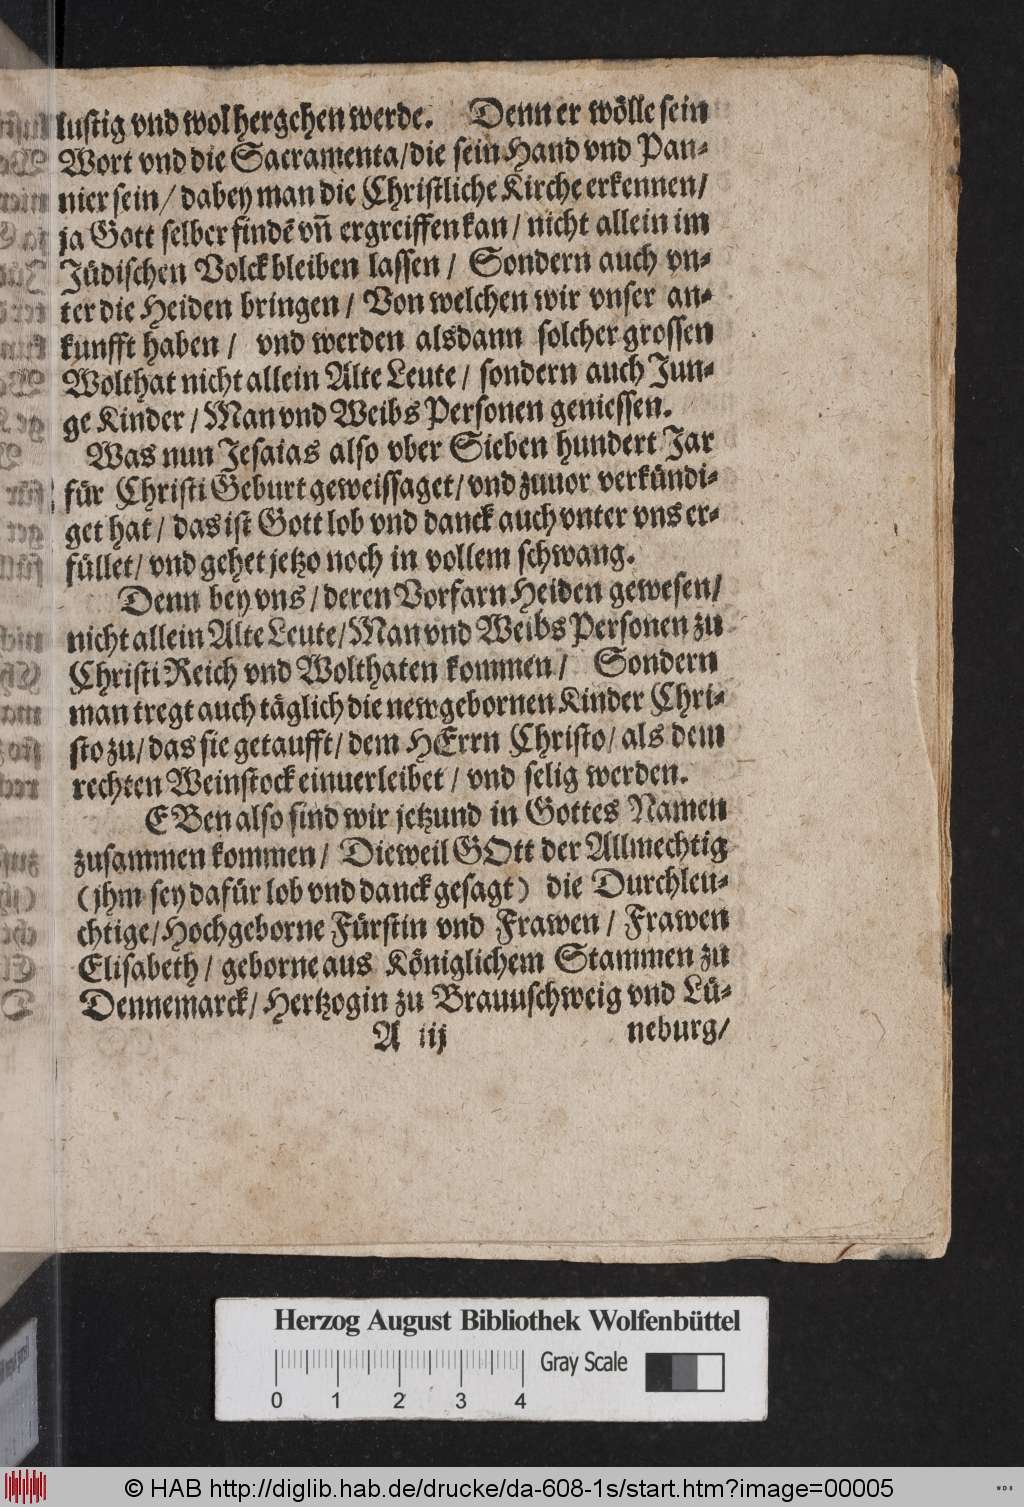 lustig vnd wol hergehen werde. Denn er wölle sein
Wort vnd die Sacramenta/die sein Hand vnd Pan-
nier sein/ dabey man die Christliche Kirche erkennen/
ja Gott selber findẽ vñ ergreiffen kan/ nicht allein im
Jüdischen Volck bleiben lassen/ Sondern auch vn-
ter die Heiden bringen/ Von welchen wir vnser an-
kunfft haben/ vnd werden alsdann solcher grossen
Wolthat nicht allein Alte Leute/ sondern auch Jun-
ge Kinder/ Man vnd Weibs Personen geniessen.
Was nun Jesaias also vber Sieben hundert Jar
für Christi Geburt geweissaget/ vnd zuuor verkündi-
get hat/ das ist Gott lob vnd danck auch vnter vns er-
füllet/ vnd gehet jetzo noch in vollem schwang.
Denn bey vns/ deren Vorfarn Heiden gewesen/
nicht allein Alte Leute/Man vnd Weibs Personen zu
Christi Reich vnd Wolthaten kommen/ Sondern
man tregt auch täglich die newgebornen Kinder Chri-
sto zu/ das sie getaufft/ dem HErrn Christo/ als dem
rechten Weinstock einuerleibet/ vnd selig werden.
EBen also sind wir jetzund in Gottes Namen
zusammen kommen/ Dieweil GOtt der Allmechtig
(jhm sey dafür lob vnd danck gesagt) die Durchleu-
chtige/ Hochgeborne Fürstin vnd Frawen/ Frawen
Elisabeth/ geborne aus Königlichem Stammen zu
Dennemarck/ Hertzogin zu Brauuschweig vnd Lü-
A iij neburg/
Herzog August Bibliothek Wolfenbüttel
Gray Scale
0 1 2 3 4
© HAB http://diglib.hab.de/drucke/da-608-1s/start.htm?image=00005